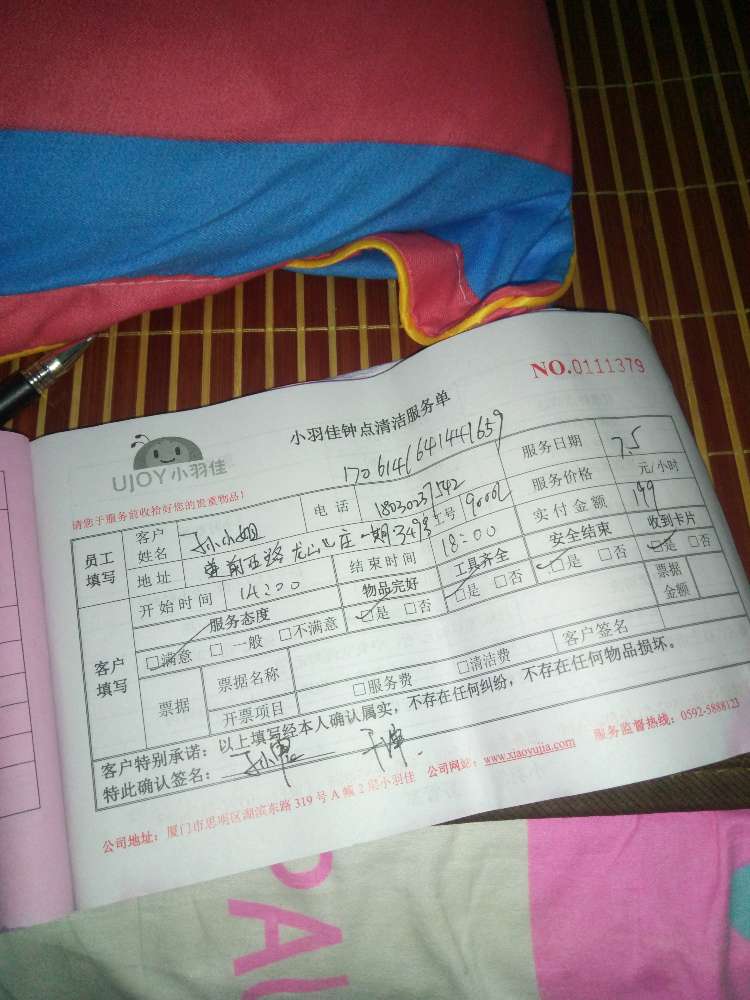 NO.0111379
小羽佳钟点清洁服务单
UJOY小羽佳
170614641441659
请您于服务前收拾好您的贵重物品!
员工填写 客户姓名 孙小姐 电话 服务日期 7.5
地址 龙山山庄一期 工号 服务价格 元/小时
开始时间 14:00 结束时间 18:00 实付金额 199
客户填写 服务态度 物品完好 工具齐全 安全结束 收到卡片
□满意 □一般 □不满意 □是 □否 □是 □否 □是 □否 □是 □否
票据 票据名称 客户签名 票据金额
开票项目 □服务费 □清洁费
客户特别承诺:以上填写经本人确认属实,不存在任何纠纷,不存在任何物品损坏。
特此确认签名:
公司地址:厦门市思明区湖滨东路 319 号 A 幢 2 层小羽佳 公司网站:www.xiaoyujia.com 服务监督热线:0592-5888123